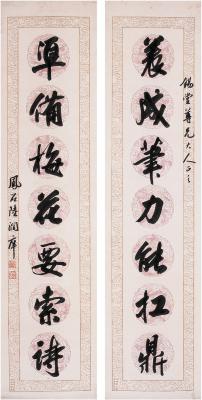 錫堂尊兄大人正之
養成筆力能扛鼎
準備梅花要索詩
鳳石陸潤庠